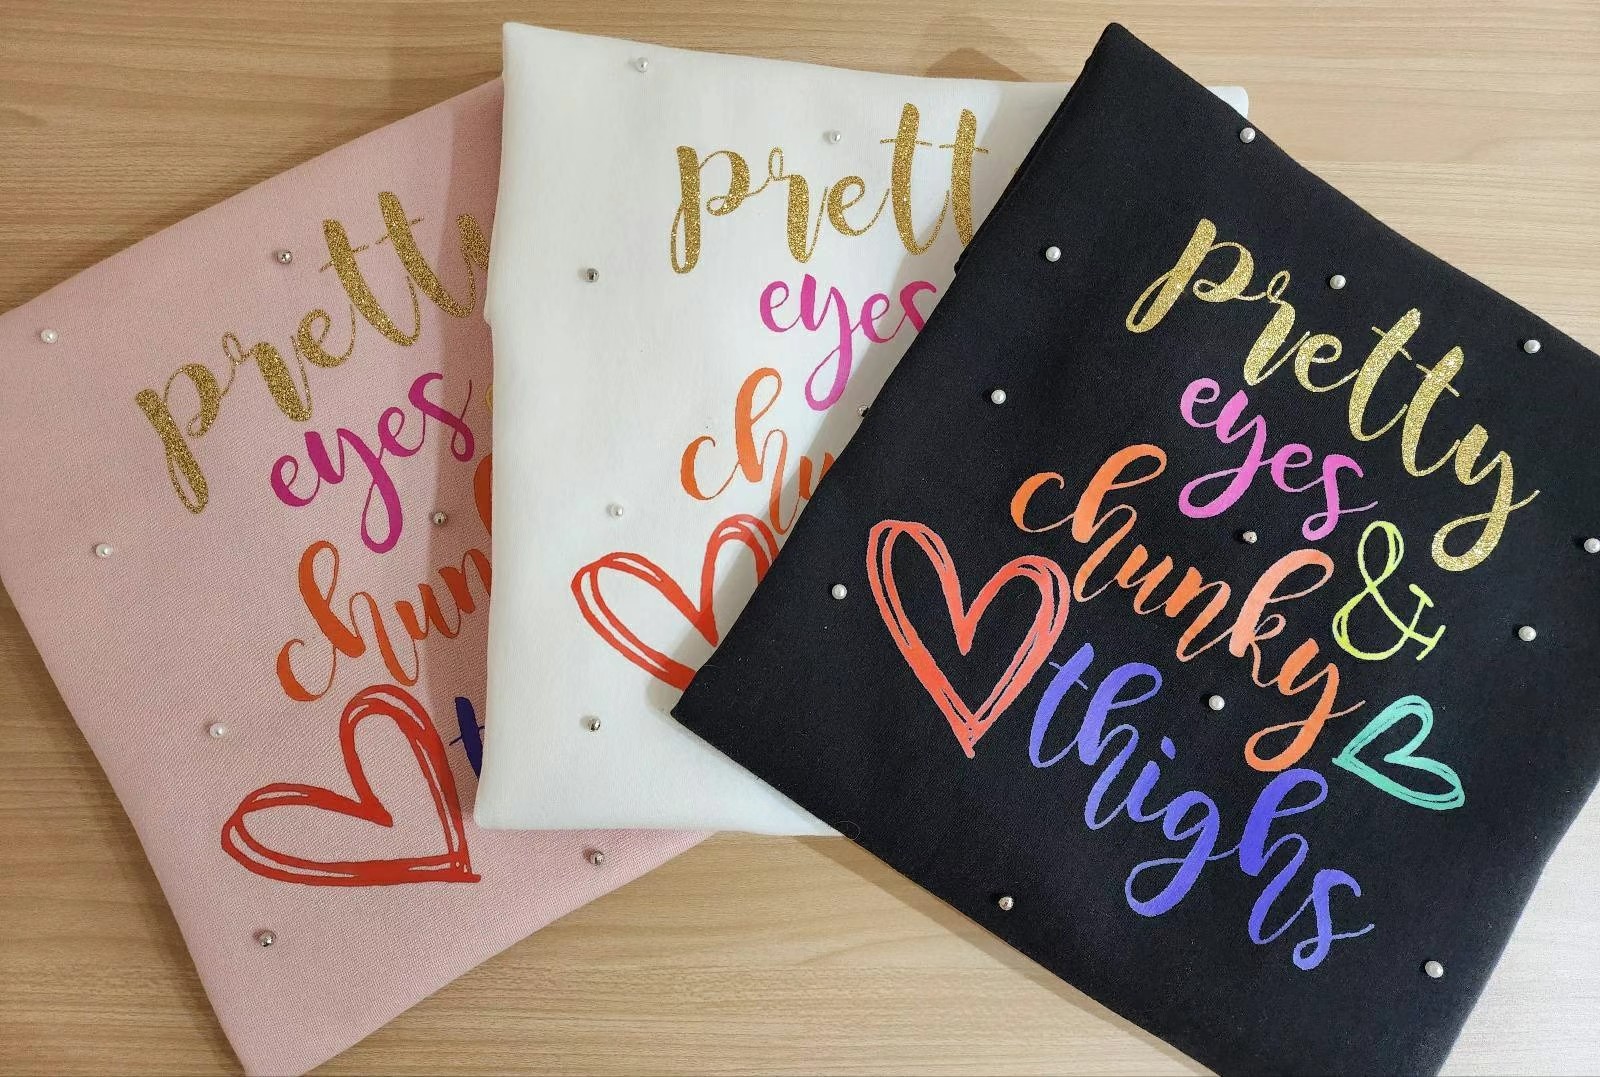 pretty
eyes
chun
t
prett
eyes
chu
pretty
eyes &
chunky
thighs